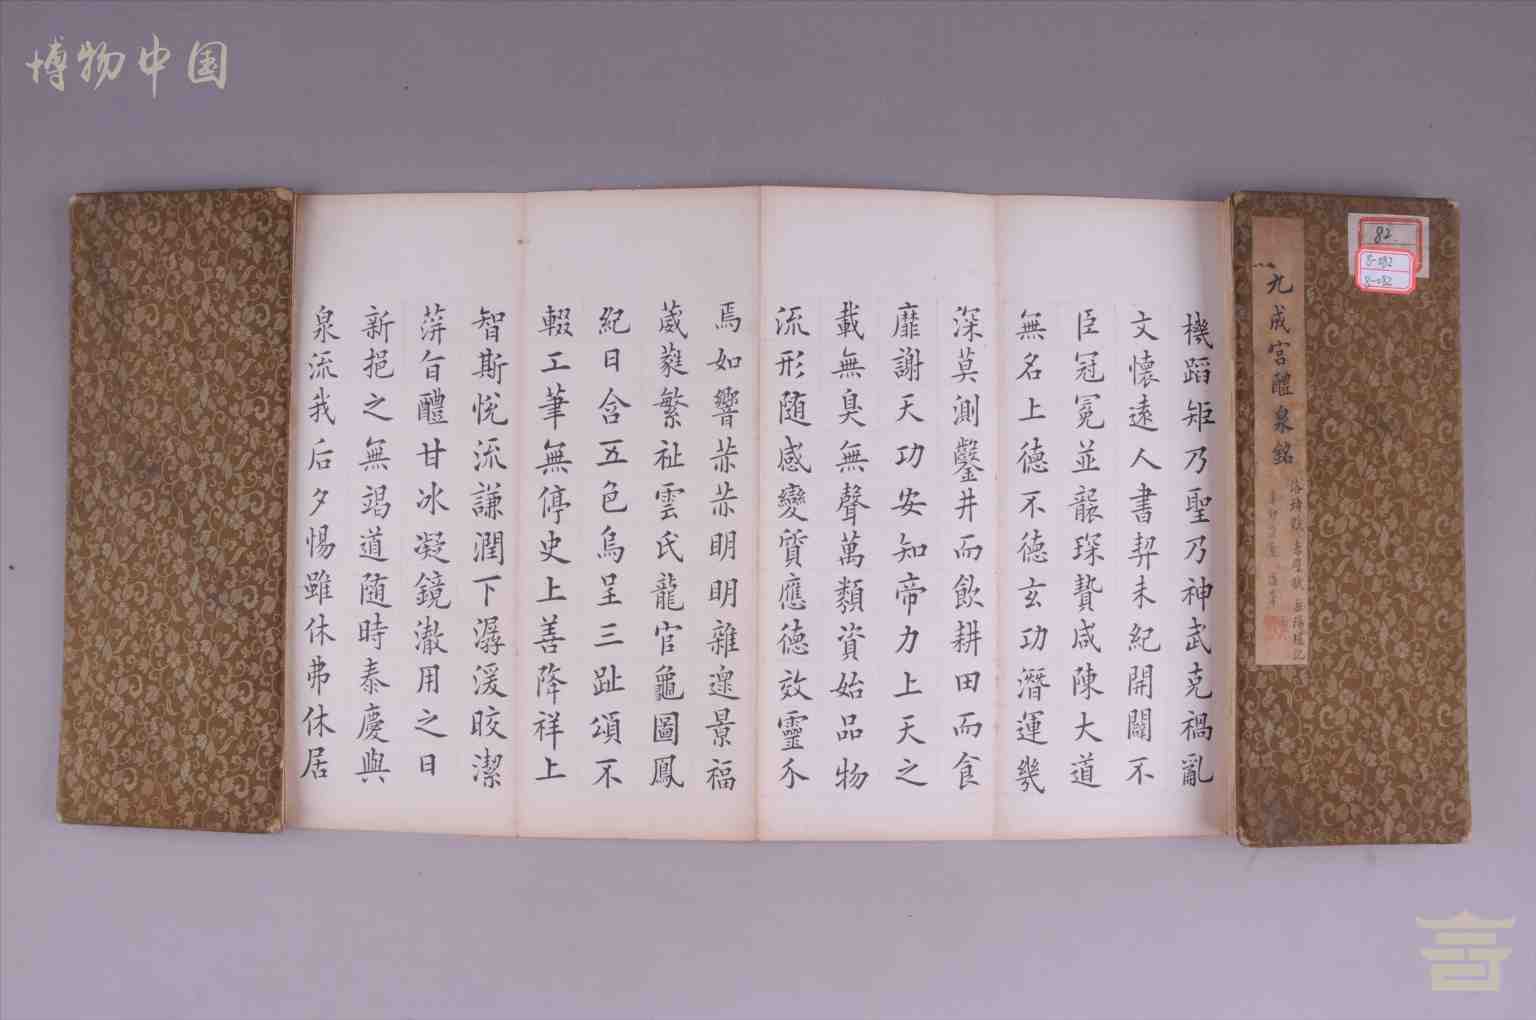 博物中国
82.
8-082
8-082
九成宮醴泉銘
機蹈矩乃聖乃神武克禍亂
文懷遠人書契未紀開闢不
臣冠冕並襲琛贄咸陳大道
無名上德不德玄功潛運幾
深莫測鑿井而飲耕田而食
靡謝天功安知帝力上天之
載無臭無聲萬類資始品物
流形随感變質應德效靈介
焉如響赤赤明明雜遝景福
葳蕤繁祉雲氏龍官龜圖鳳
紀日含五色烏呈三趾頌不
輟工筆無停史上善降祥上
智斯悅流謙潤下潺湲晈潔
蓱旨醴甘冰凝鏡澈用之日
新挹之無竭道随時泰慶與
泉流我后夕惕雖休弗休居